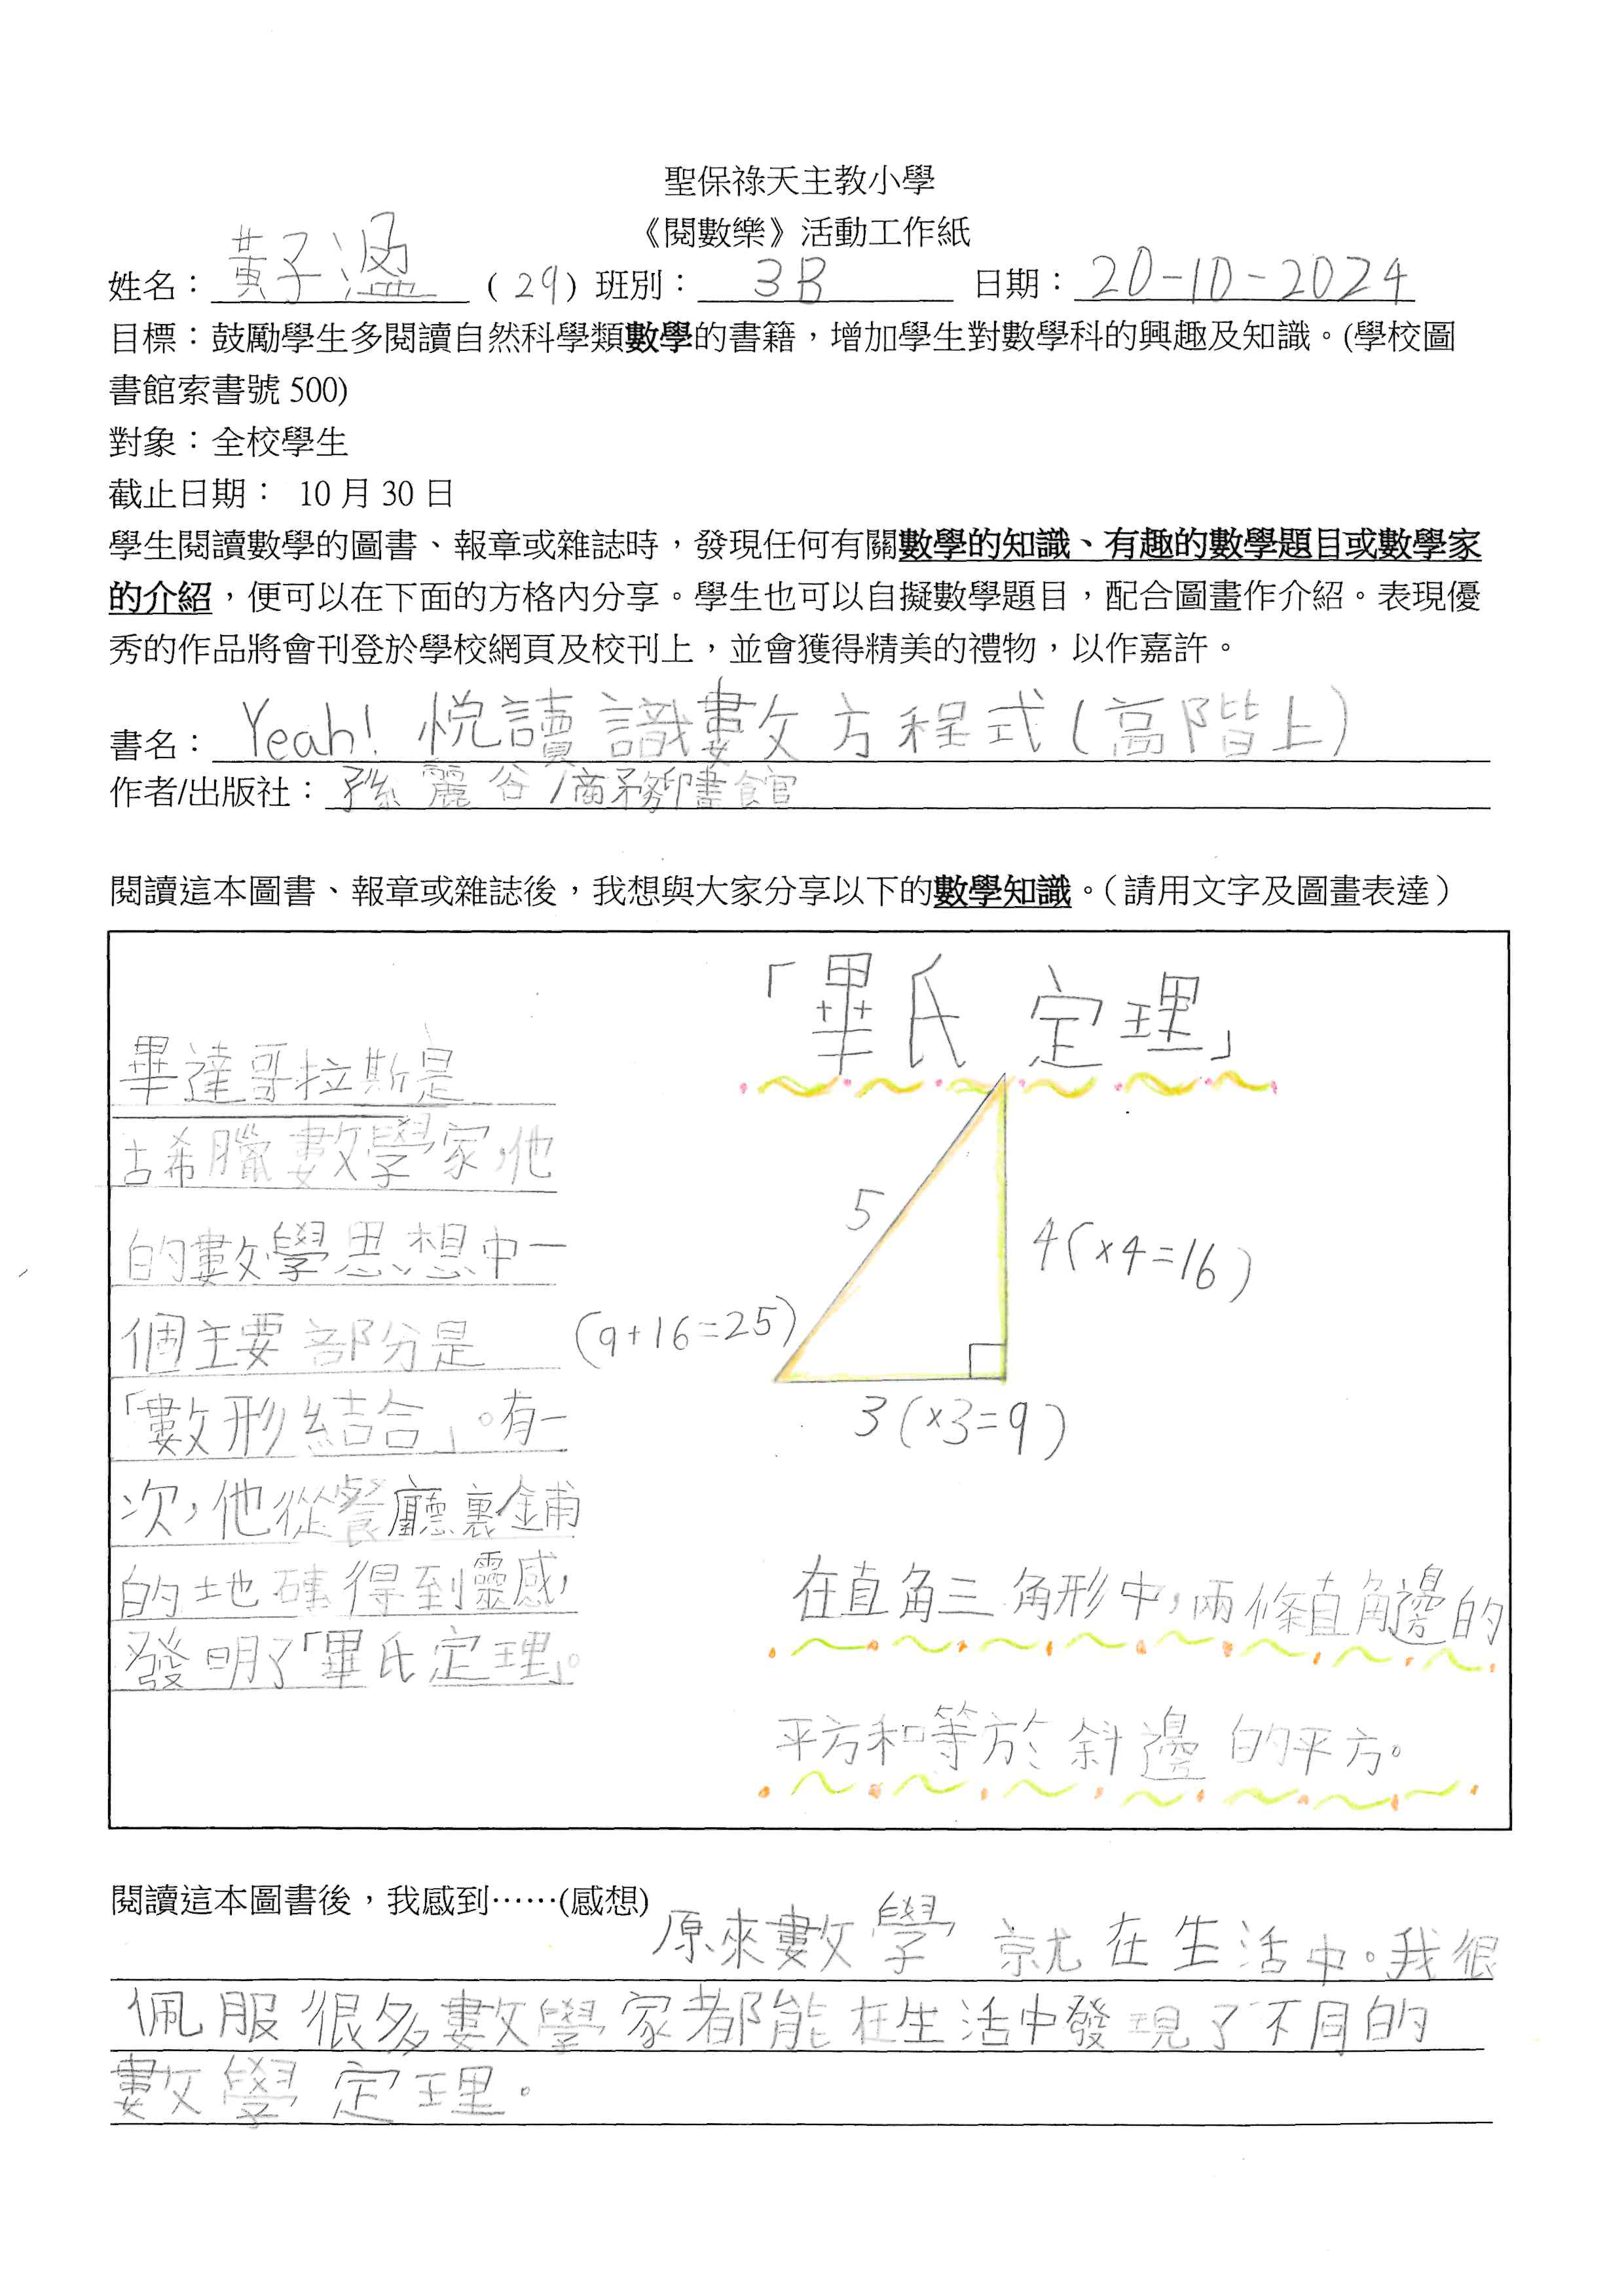 聖保祿天主教小學
《閱數樂》活動工作紙
姓名：黃子溫（29）班別：3B 日期：20-10-2024
目標：鼓勵學生多閱讀自然科學類數學的書籍，增加學生對數學科的興趣及知識。(學校圖
書館索書號 500)
對象：全校學生
截止日期： 10 月 30 日
學生閱讀數學的圖書、報章或雜誌時，發現任何有關數學的知識、有趣的數學題目或數學家
的介紹，便可以在下面的方格內分享。學生也可以自擬數學題目，配合圖畫作介紹。表現優
秀的作品將會刊登於學校網頁及校刊上，並會獲得精美的禮物，以作嘉許。
書名：Yeah! 悅讀識數方程式(高階上)
作者/出版社：孫麗谷/商務印書館
閱讀這本圖書、報章或雜誌後，我想與大家分享以下的數學知識。（請用文字及圖畫表達）
畢達哥拉斯是
古希臘數學家，他
的數學思想中一
個主要部分是
「數形結合」。有一
次，他從餐廳裏鋪
的地磚得到靈感，
發明了「畢氏定理」。
「畢氏定理」
5
4(×4=16)
(9+16=25)
3(×3=9)
在直角三角形中，兩條直角邊的
平方和等於斜邊的平方。
閱讀這本圖書後，我感到……(感想)
原來數學就在生活中。我很
佩服很多數學家都能在生活中發現了不同的
數學定理。